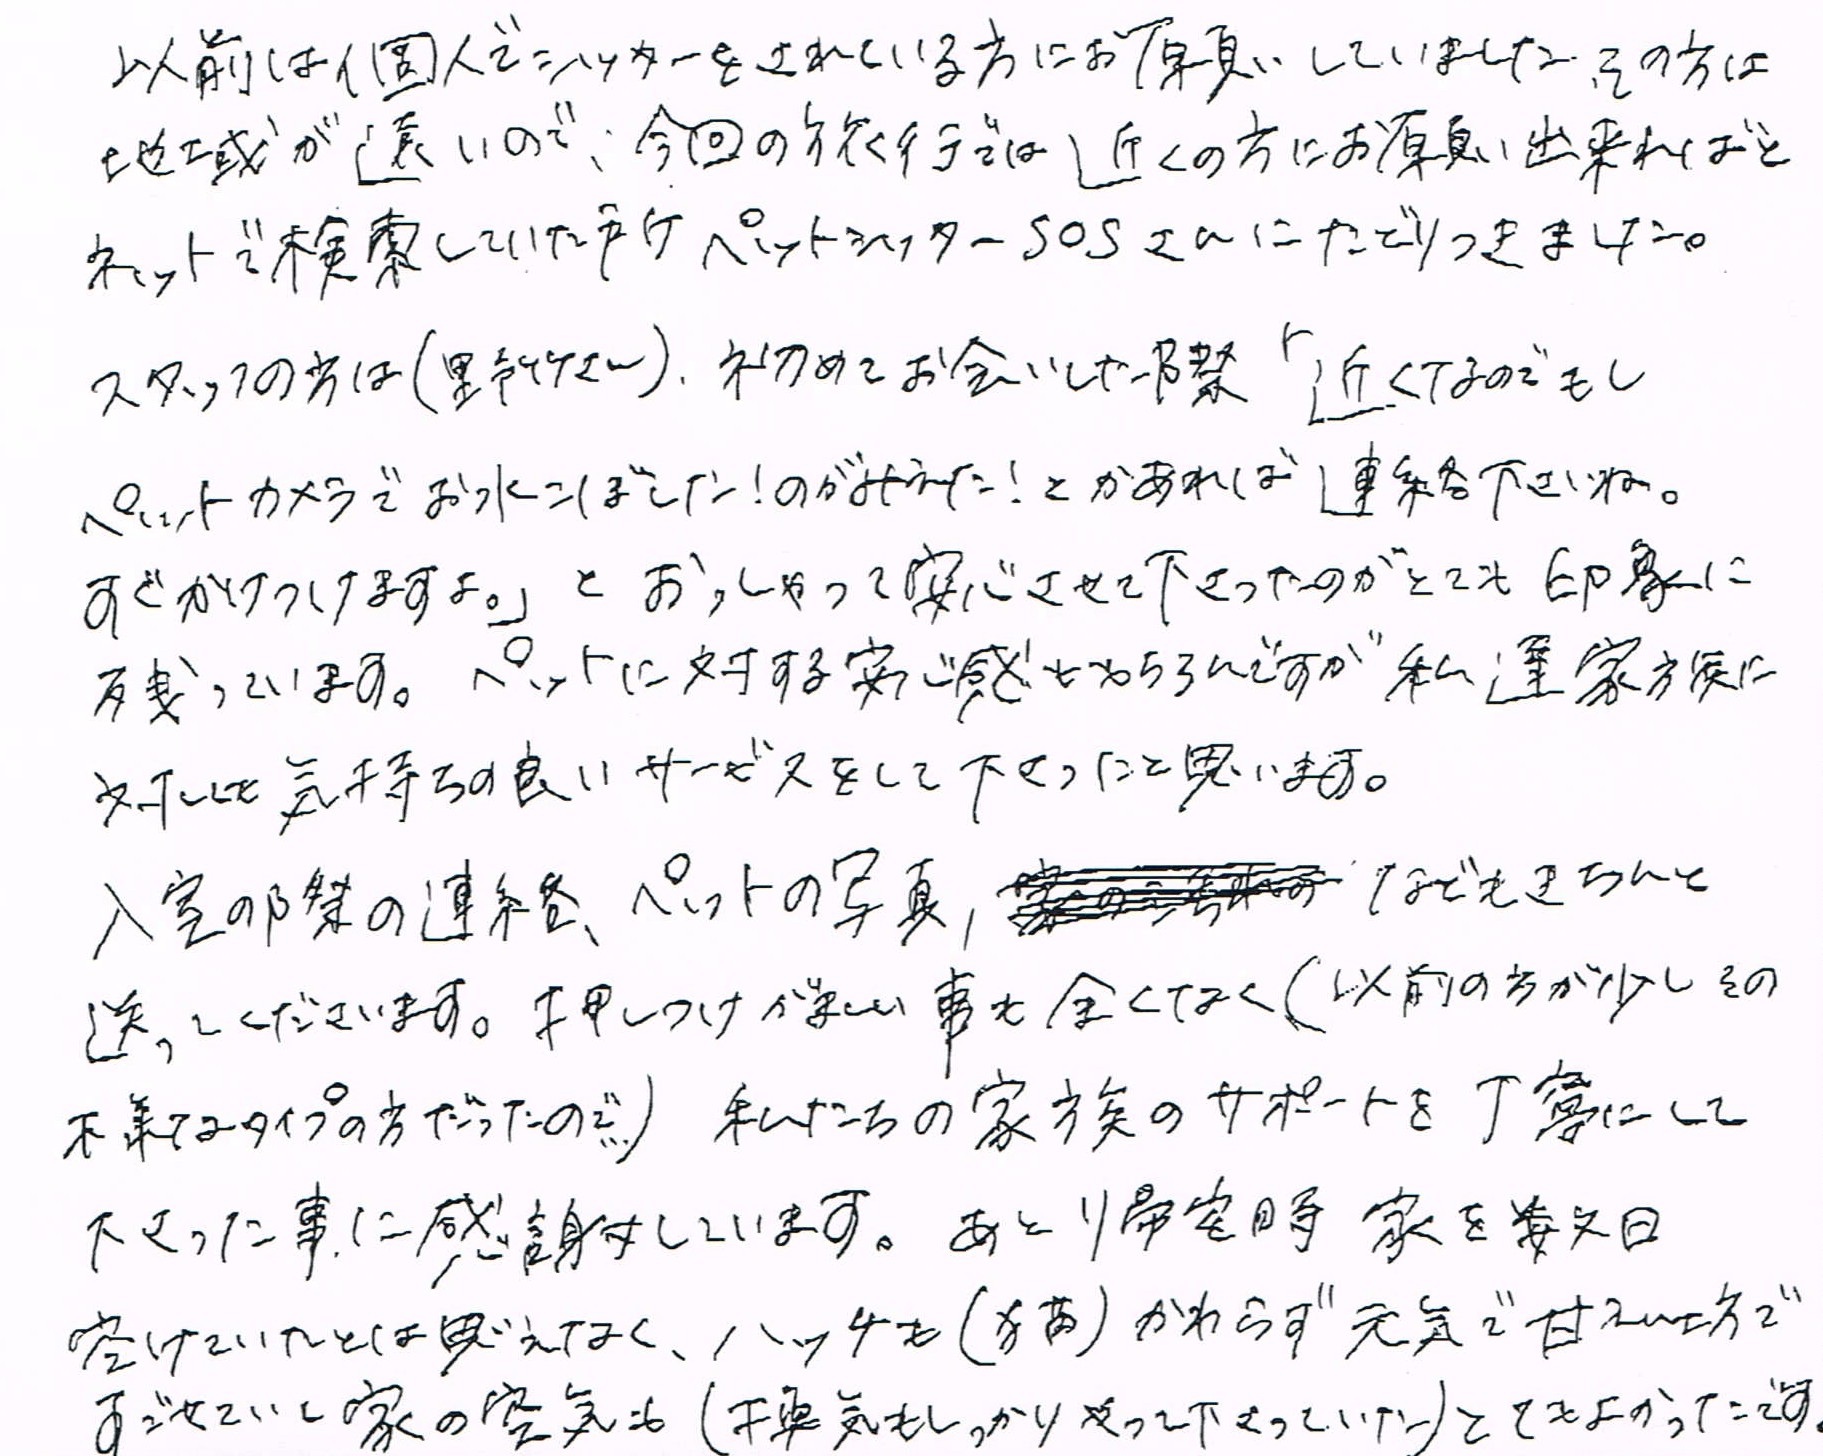 以前は個人でシッターをされている方にお願いしていました、その方は
地域が遠いので、今回の旅行では近くの方にお願い出来ればと
ネットで検索していた所ペットシッターSOSさんにたどりつきました。
スタッフの方は(野さん)、初めてお会いした際「近くなのでもし
ペットカメラでお水こぼした!のがみえた!とかあれば連絡下さいね。
すぐかけつけますよ。」とおっしゃって安心させて下さったのがとても印象に
残っています。ペットに対する安心感ももちろんですが私達家族に
対しても気持ちの良いサービスをして下さったと思います。
入室の際の連絡、ペットの写真, などもきちんと
送ってくださいます。押しつけがましい事も全くなく(以前の方が少しその
様なタイプの方だったので…)私たちの家族のサポートを丁寧にして
下さった事に感謝しています。あと帰宅時家を数日
空けていたとは思えなく、ハッチも(猫)かわらず元気で甘えん坊で
すごせていし家の空気も(換気もしっかりやって下さっていた)とてもよかったです。